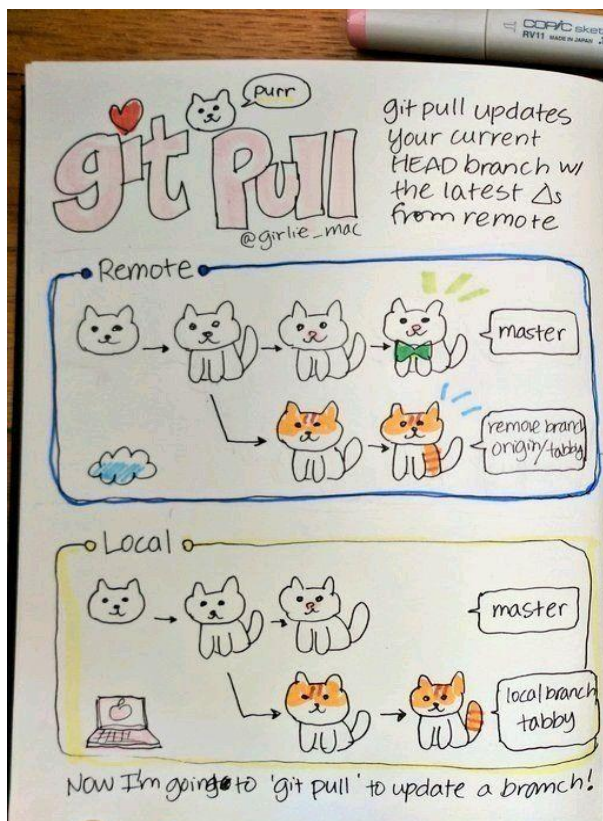 COPIC sket
RV11 MADE IN JAPAN
purr
git Pull
@girlie_mac
git pull updates
your current
HEAD branch w/
the latest Δs
from remote
Remote
master
remote branch
origin/tabby
Local
master
local branch
tabby
Now I'm going to 'git pull' to update a branch!